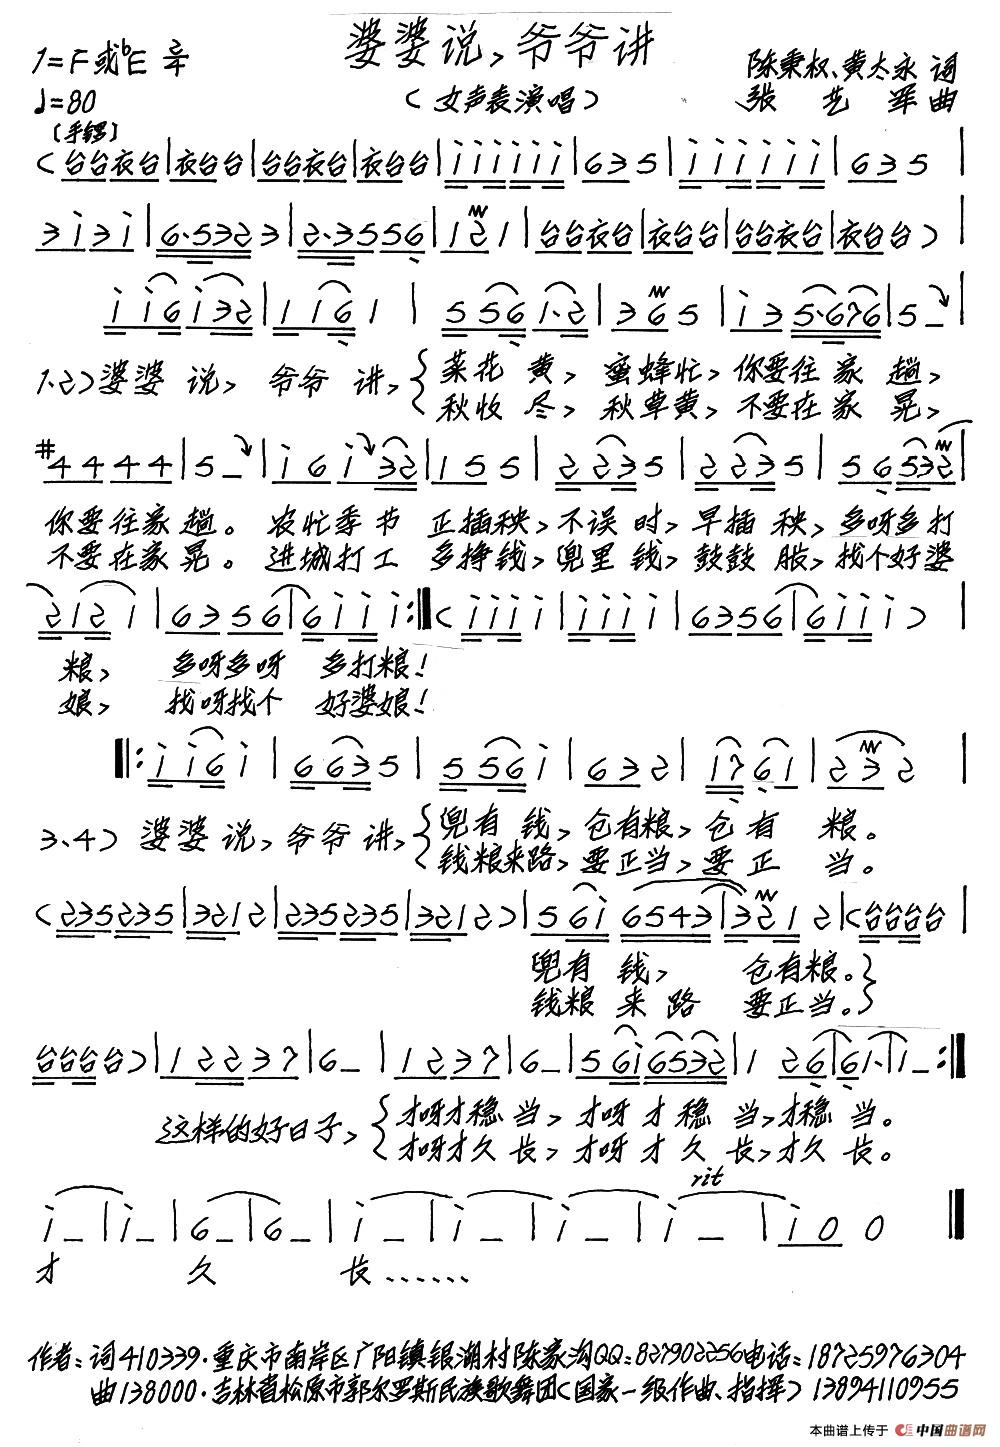 婆婆说,爷爷讲
1=F或♭E 2/4
♩=80
(女声表演唱)
陈秉权、黄太永 词
张艺军 曲
[手锣]
(台台衣台|衣台台|台台衣台|衣台台|i i i i i i|6 3 5|i i i i i i|6 3 5|
3 i 3 i|6·5 3 2 3|2·3 5 5 6|1 2 1|台台衣台|衣台台|台台衣台|衣台台)|
i i 6 i 3 2|1 1 6 1|5 5 6 1·2|3 6 5|i 3 5·6 7 6|5 -|
1.2)婆婆 说, 爷爷 讲, 菜花 黄, 蜜蜂忙, 你要往 家 趟,
秋收 尽, 秋草黄, 不要在 家 晃,
#4 4 4 4|5 -|i 6 i 3 2|1 5 5|2 2 3 5|2 2 3 5|5 6 5 3 2|
你要往家 趟。 农忙季节 正插秧, 不误 时, 早插 秧, 多呀多 打
不要在家 晃。 进城打工 多挣钱, 兜里 钱, 鼓鼓 胀, 找个好 婆
2 1 2 1|6 3 5 6|6 i i i:‖(i i i i i|i i i i i|6 3 5 6|6 i i i)|
粮, 多呀多呀 多打粮!
娘, 找呀找个 好婆娘!
‖:i i 6 i|6 6 3 5|5 5 6 i|6 3 2|1 7 6 1|2 3 2|
3.4) 婆婆 说, 爷爷 讲, 兜有 钱, 仓有粮, 仓 有 粮。
钱粮来路, 要正当, 要 正 当。
(2 3 5 2 3 5|3 2 1 2|2 3 5 2 3 5|3 2 1 2)|5 6 i 6 5 4 3|3 2 1 2|(台台台台|
兜有 钱, 仓有粮。
钱粮 来 路 要正当。
台台台台)|1 2 2 3 7|6 -|1 2 3 7|6 -|5 6 i 6 5 3 2|1 2 6|6 1·|1 -:‖
这样的好日子, 才呀才稳 当, 才呀 才 稳 当,才稳 当。
才呀才久 长, 才呀 才 久 长,才久 长。
rit
i -|i -|6 -|6 -|i -|i -|i -|i -|i 0 0‖
才 久 长……
作者:词410339·重庆市南岸区广阳镇银湖村陈家沟QQ:827902256电话:18725976304
曲138000·吉林省松原市郭尔罗斯民族歌舞团(国家一级作曲、指挥)13894110955
本曲谱上传于 中国曲谱网